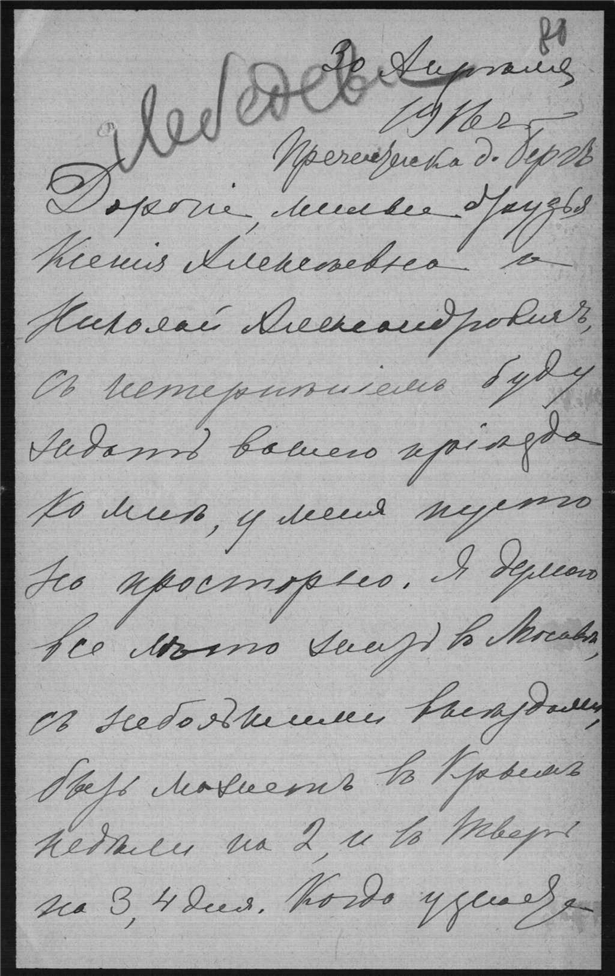 80
Лебедевы
30 Апреля
1916 г.
Пречистенка д. Бергъ
Дорогіе, милые друзья
Ксенія Алексѣевна и
Николай Александровичъ,
съ нетерпѣніемъ буду
ждать вашего пріѣзда
ко мнѣ, у меня пусто
но просторно. Я думаю
все лѣто жить въ Москвѣ,
съ небольшими выѣздами,
быть можетъ въ Крымъ
недѣли на 2, и въ Тверь
на 3, 4 дня. Когда узнаете